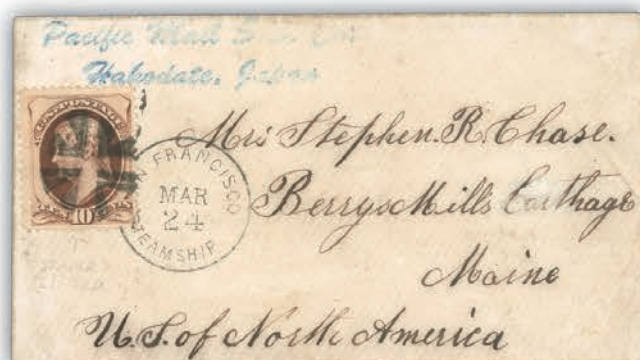 Pacific Mail
Hakodate, Japan
U.S. POSTAGE
SAN FRANCISCO
MAR
24
STEAMSHIP
10
Mrs Stephen. R. Chase.
Berrys Mills Carthage
Maine
U.S. of North America